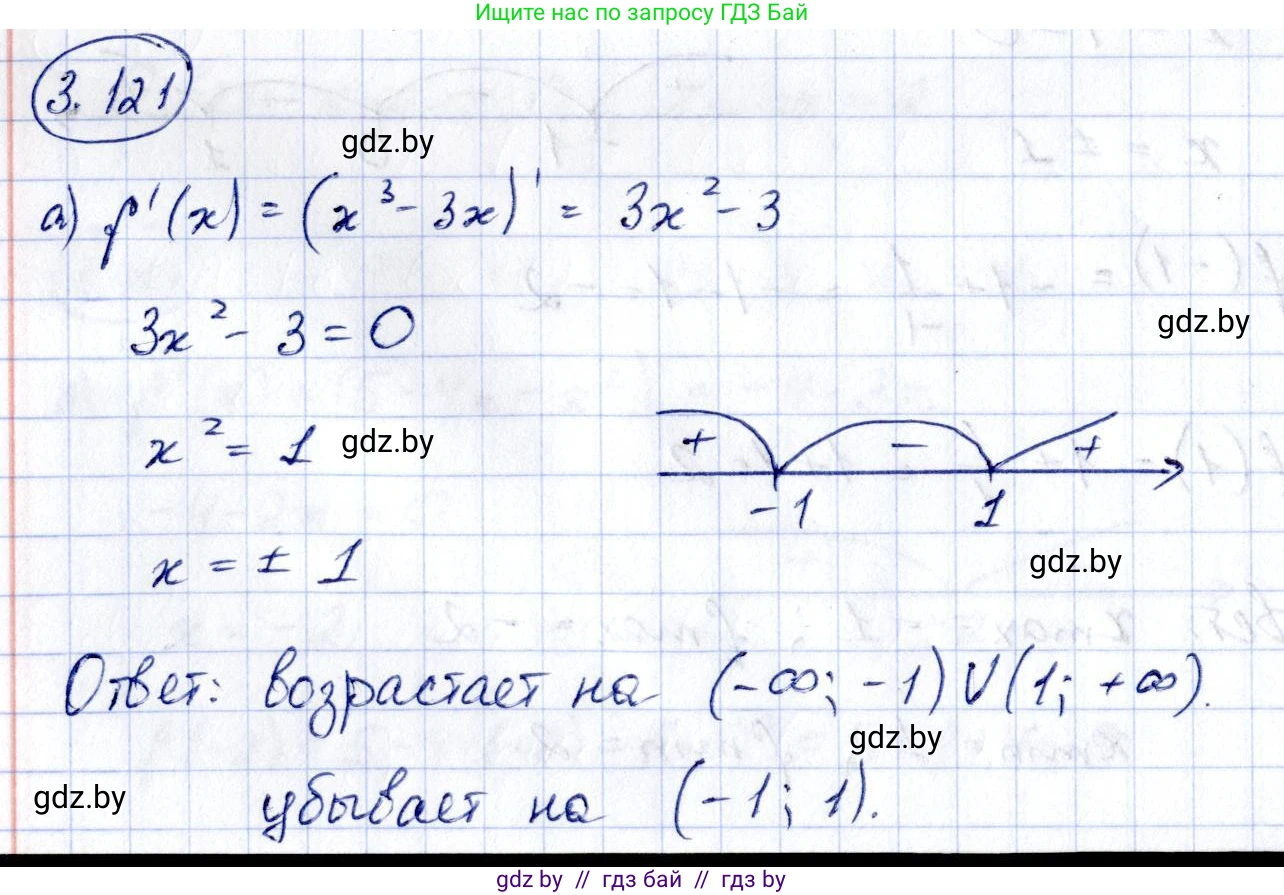 Ищите нас по запросу ГДЗ Бай
3.121
gdz.by
а) f'(x) = (x³ - 3x)' = 3x² - 3
3x² - 3 = 0
gdz.by
x² = 1
gdz.by
+ - +
-1 1
x = ± 1
gdz.by
Ответ: возрастает на (-∞; -1) U (1; +∞).
gdz.by
gdz.by
убывает на (-1; 1).
gdz.by // гдз бай // гдз by